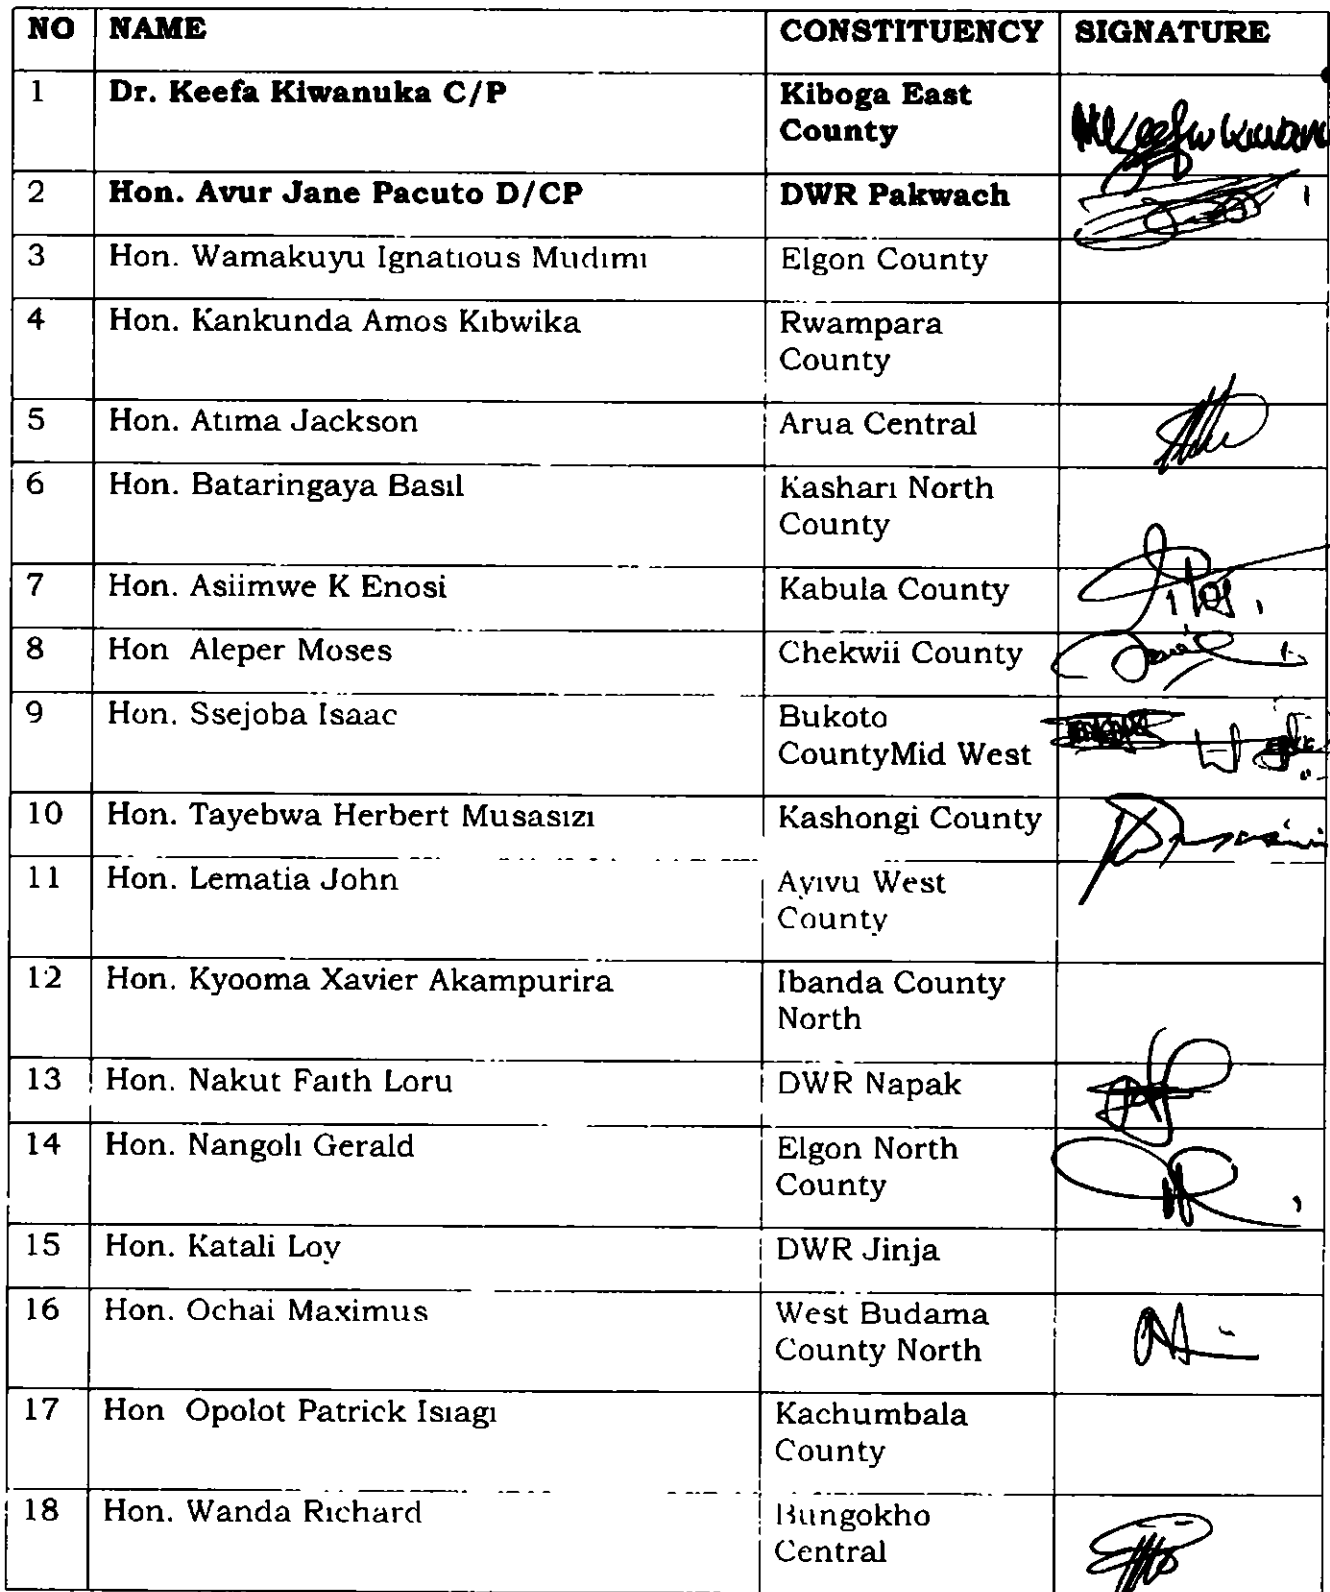 NO NAME CONSTITUENCY SIGNATURE
1 Dr. Keefa Kiwanuka C/P Kiboga East
County
2 Hon. Avur Jane Pacuto D/CP DWR Pakwach
3 Hon. Wamakuyu Ignatious Mudimi Elgon County
4 Hon. Kankunda Amos Kibwika Rwampara
County
5 Hon. Atima Jackson Arua Central
6 Hon. Bataringaya Basil Kashari North
County
7 Hon. Asiimwe K Enosi Kabula County
8 Hon Aleper Moses Chekwii County
9 Hon. Ssejoba Isaac Bukoto
CountyMid West
10 Hon. Tayebwa Herbert Musasizi Kashongi County
11 Hon. Lematia John Ayivu West
County
12 Hon. Kyooma Xavier Akampurira Ibanda County
North
13 Hon. Nakut Faith Loru DWR Napak
14 Hon. Nangoli Gerald Elgon North
County
15 Hon. Katali Loy DWR Jinja
16 Hon. Ochai Maximus West Budama
County North
17 Hon Opolot Patrick Isiagi Kachumbala
County
18 Hon. Wanda Richard Bungokho
Central